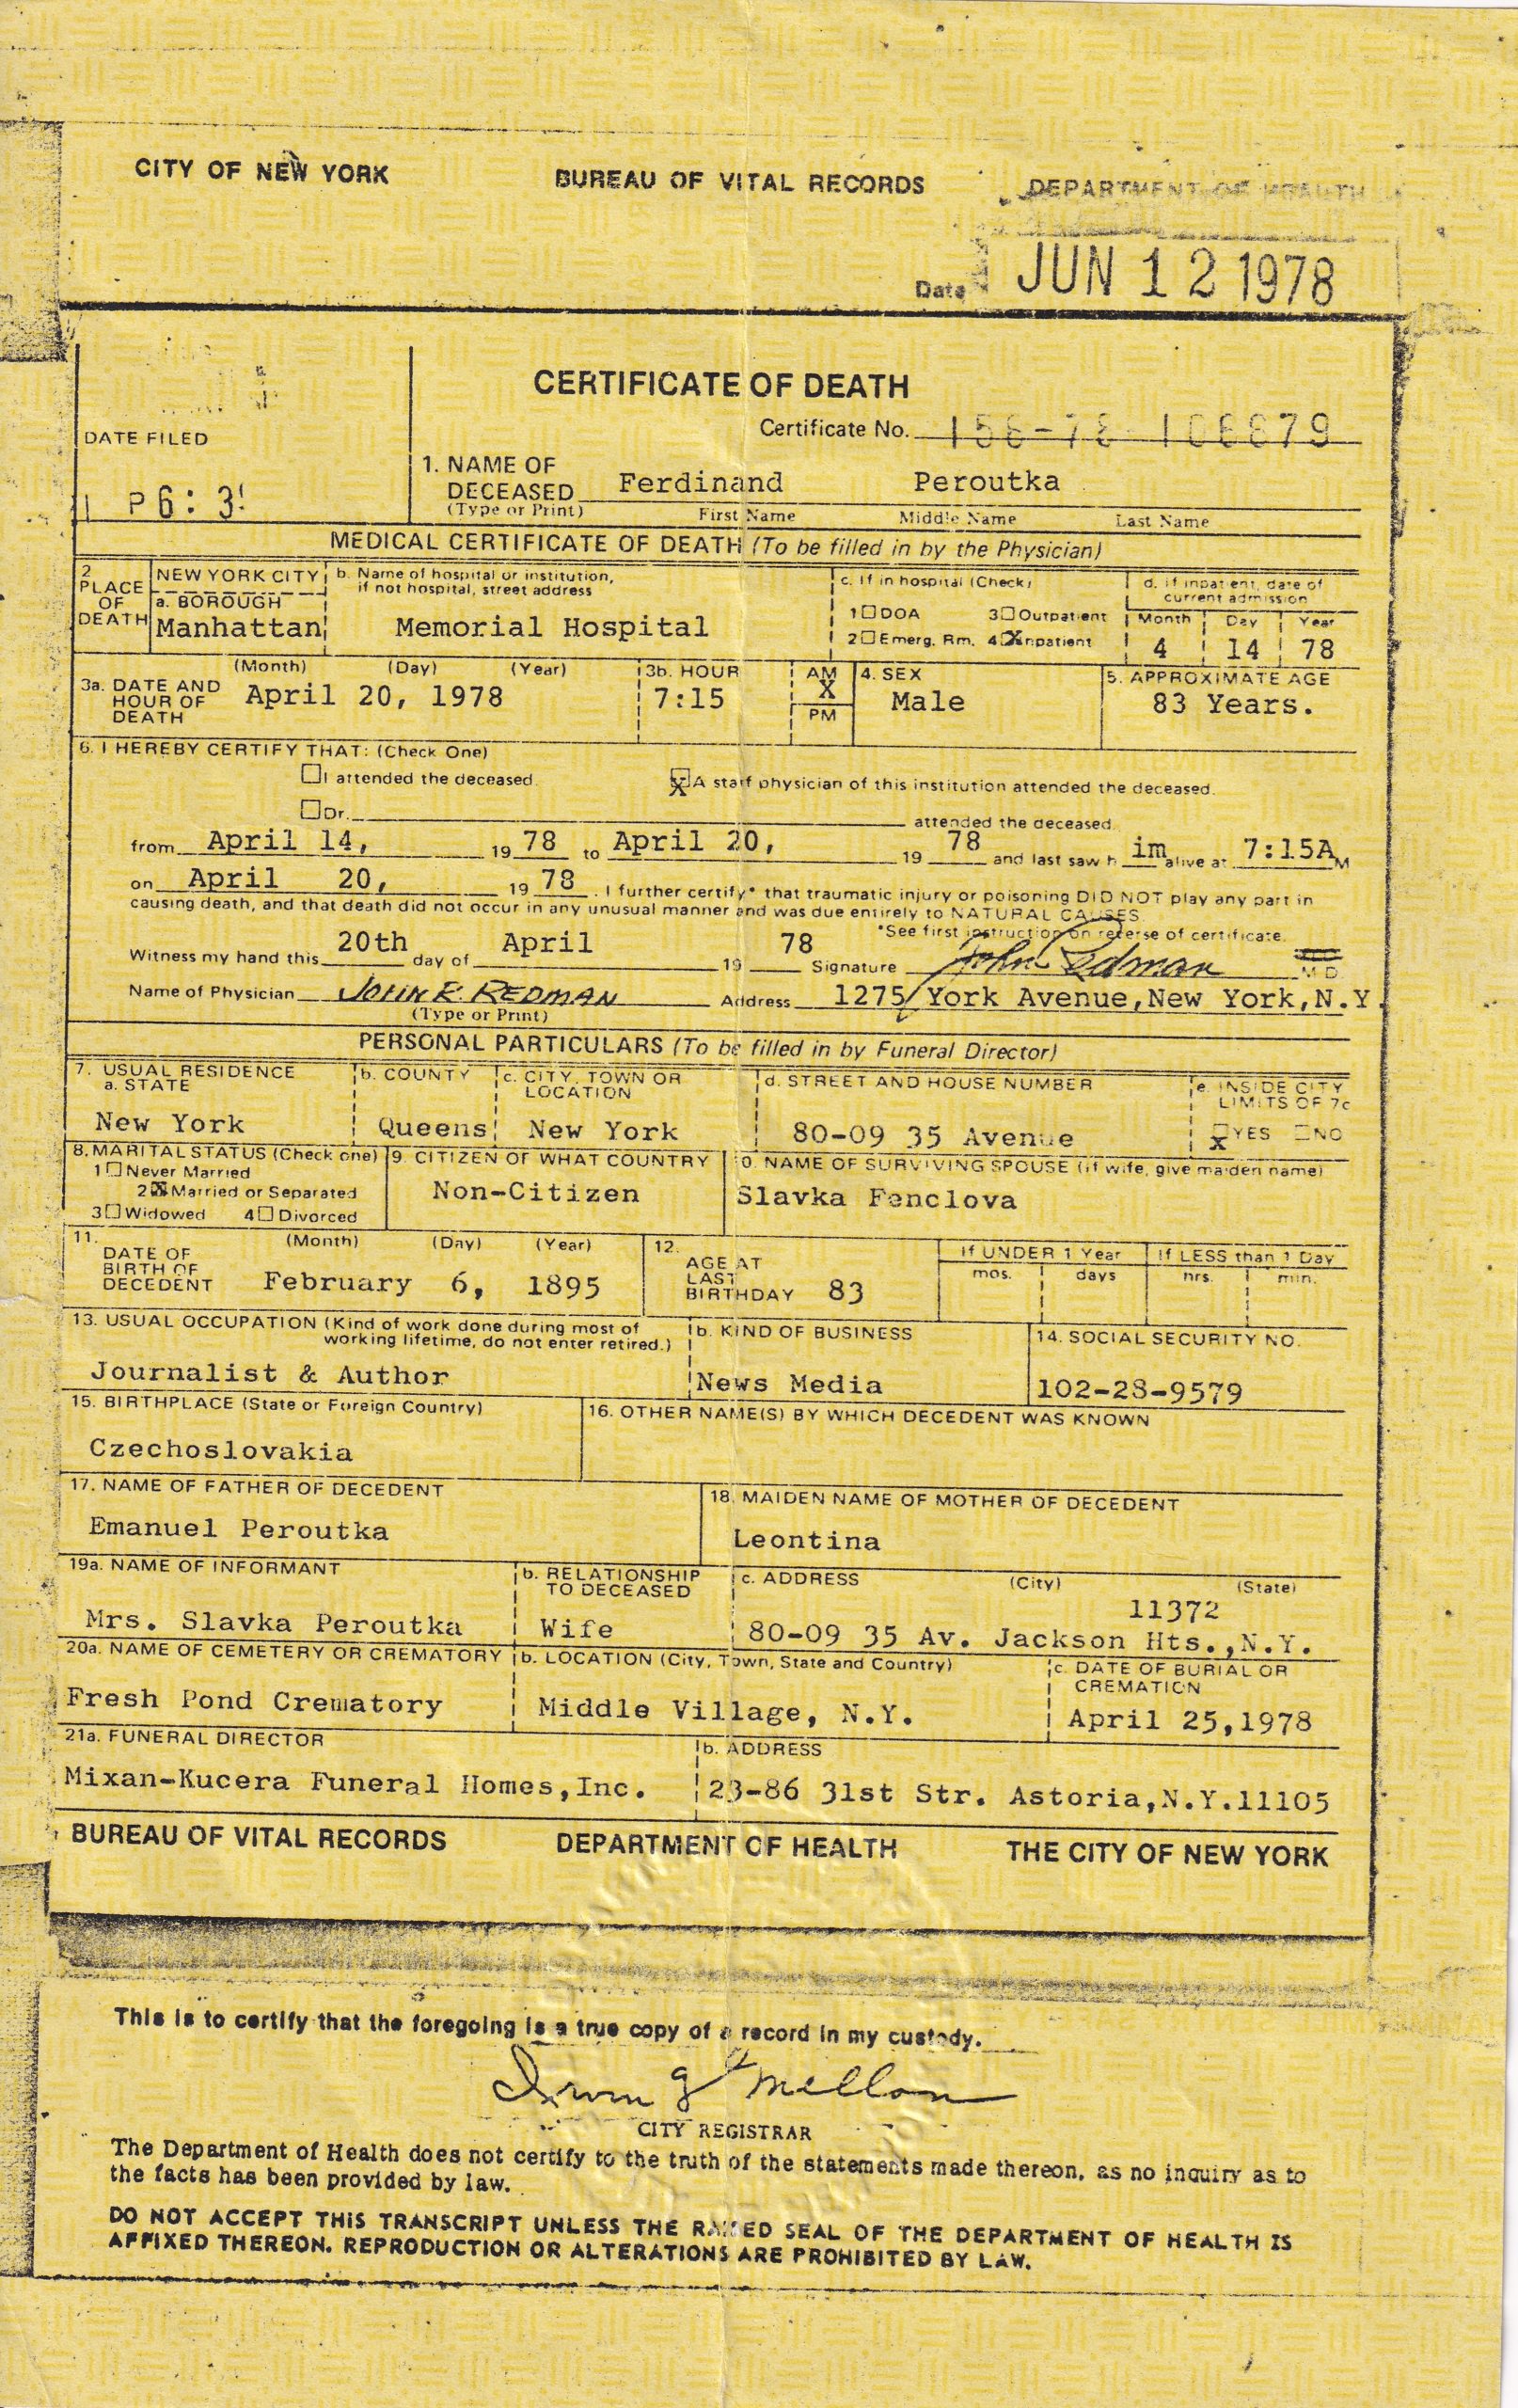 CITY OF NEW YORK BUREAU OF VITAL RECORDS DEPARTMENT OF HEALTH
Date JUN 12 1978
CERTIFICATE OF DEATH
DATE FILED
Certificate No.
1. NAME OF DECEASED (Type or Print) Ferdinand Peroutka
First Name Middle Name Last Name
MEDICAL CERTIFICATE OF DEATH (To be filled in by the Physician)
2. PLACE OF DEATH
NEW YORK CITY
a. BOROUGH
Manhattan
b. Name of hospital or institution,
if not hospital, street address
Memorial Hospital
c. If in hospital (Check)
1 DOA 3 Outpatient
2 Emerg. Rm. 4 X Inpatient
d. If inpatient, date of
current admission
Month Day Year
4 14 78
3a. DATE AND HOUR OF DEATH
(Month) (Day) (Year)
April 20, 1978
3b. HOUR
7:15
AM X
PM
4. SEX
Male
5. APPROXIMATE AGE
83 Years.
6. I HEREBY CERTIFY THAT: (Check One)
I attended the deceased. X A staff physician of this institution attended the deceased.
Dr. attended the deceased
from April 14, 19 78 to April 20, 19 78 and last saw h im alive at 7:15A M
on April 20, 19 78. I further certify* that traumatic injury or poisoning DID NOT play any part in
causing death, and that death did not occur in any unusual manner and was due entirely to NATURAL CAUSES.
*See first instruction on reverse of certificate.
Witness my hand this 20th day of April 19 78 Signature John Redman M.D.
Name of Physician JOHN R. REDMAN Address 1275 York Avenue, New York, N.Y.
(Type or Print)
PERSONAL PARTICULARS (To be filled in by Funeral Director)
7. USUAL RESIDENCE
a. STATE
New York
b. COUNTY
Queens
c. CITY, TOWN OR
LOCATION
New York
d. STREET AND HOUSE NUMBER
80-09 35 Avenue
e. INSIDE CITY
LIMITS OF 7c
X YES NO
8. MARITAL STATUS (Check one)
1 Never Married
2 X Married or Separated
3 Widowed 4 Divorced
9. CITIZEN OF WHAT COUNTRY
Non-Citizen
10. NAME OF SURVIVING SPOUSE (if wife, give maiden name)
Slavka Fenclova
11. DATE OF BIRTH OF DECEDENT
(Month) (Day) (Year)
February 6, 1895
12. AGE AT LAST BIRTHDAY 83
If UNDER 1 Year If LESS than 1 Day
mos. days hrs. min.
13. USUAL OCCUPATION (Kind of work done during most of
working lifetime, do not enter retired.)
Journalist & Author
b. KIND OF BUSINESS
News Media
14. SOCIAL SECURITY NO.
102-28-9579
15. BIRTHPLACE (State or Foreign Country)
Czechoslovakia
16. OTHER NAME(S) BY WHICH DECEDENT WAS KNOWN
17. NAME OF FATHER OF DECEDENT
Emanuel Peroutka
18. MAIDEN NAME OF MOTHER OF DECEDENT
Leontina
19a. NAME OF INFORMANT
Mrs. Slavka Peroutka
b. RELATIONSHIP
TO DECEASED
Wife
c. ADDRESS (City) (State)
11372
80-09 35 Av. Jackson Hts.,N.Y.
20a. NAME OF CEMETERY OR CREMATORY
Fresh Pond Crematory
b. LOCATION (City, Town, State and Country)
Middle Village, N.Y.
c. DATE OF BURIAL OR
CREMATION
April 25,1978
21a. FUNERAL DIRECTOR
Mixan-Kucera Funeral Homes,Inc.
b. ADDRESS
23-86 31st Str. Astoria,N.Y.11105
BUREAU OF VITAL RECORDS DEPARTMENT OF HEALTH THE CITY OF NEW YORK
This is to certify that the foregoing is a true copy of a record in my custody.
CITY REGISTRAR
The Department of Health does not certify to the truth of the statements made thereon, as no inquiry as to
the facts has been provided by law.
DO NOT ACCEPT THIS TRANSCRIPT UNLESS THE RAISED SEAL OF THE DEPARTMENT OF HEALTH IS
AFFIXED THEREON. REPRODUCTION OR ALTERATIONS ARE PROHIBITED BY LAW.